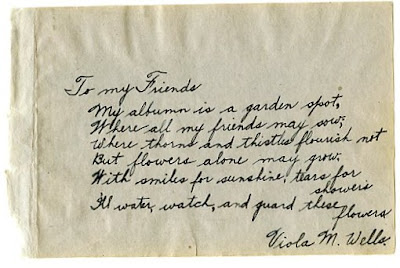 To my Friends
My albumn is a garden spot,
Where all my friends may sow;
Where thorns and thistles flourish not
But flowers alone may grow.
With smiles for sunshine, tears for
showers
Ill water, watch, and guard these
flowers
Viola M. Wells.